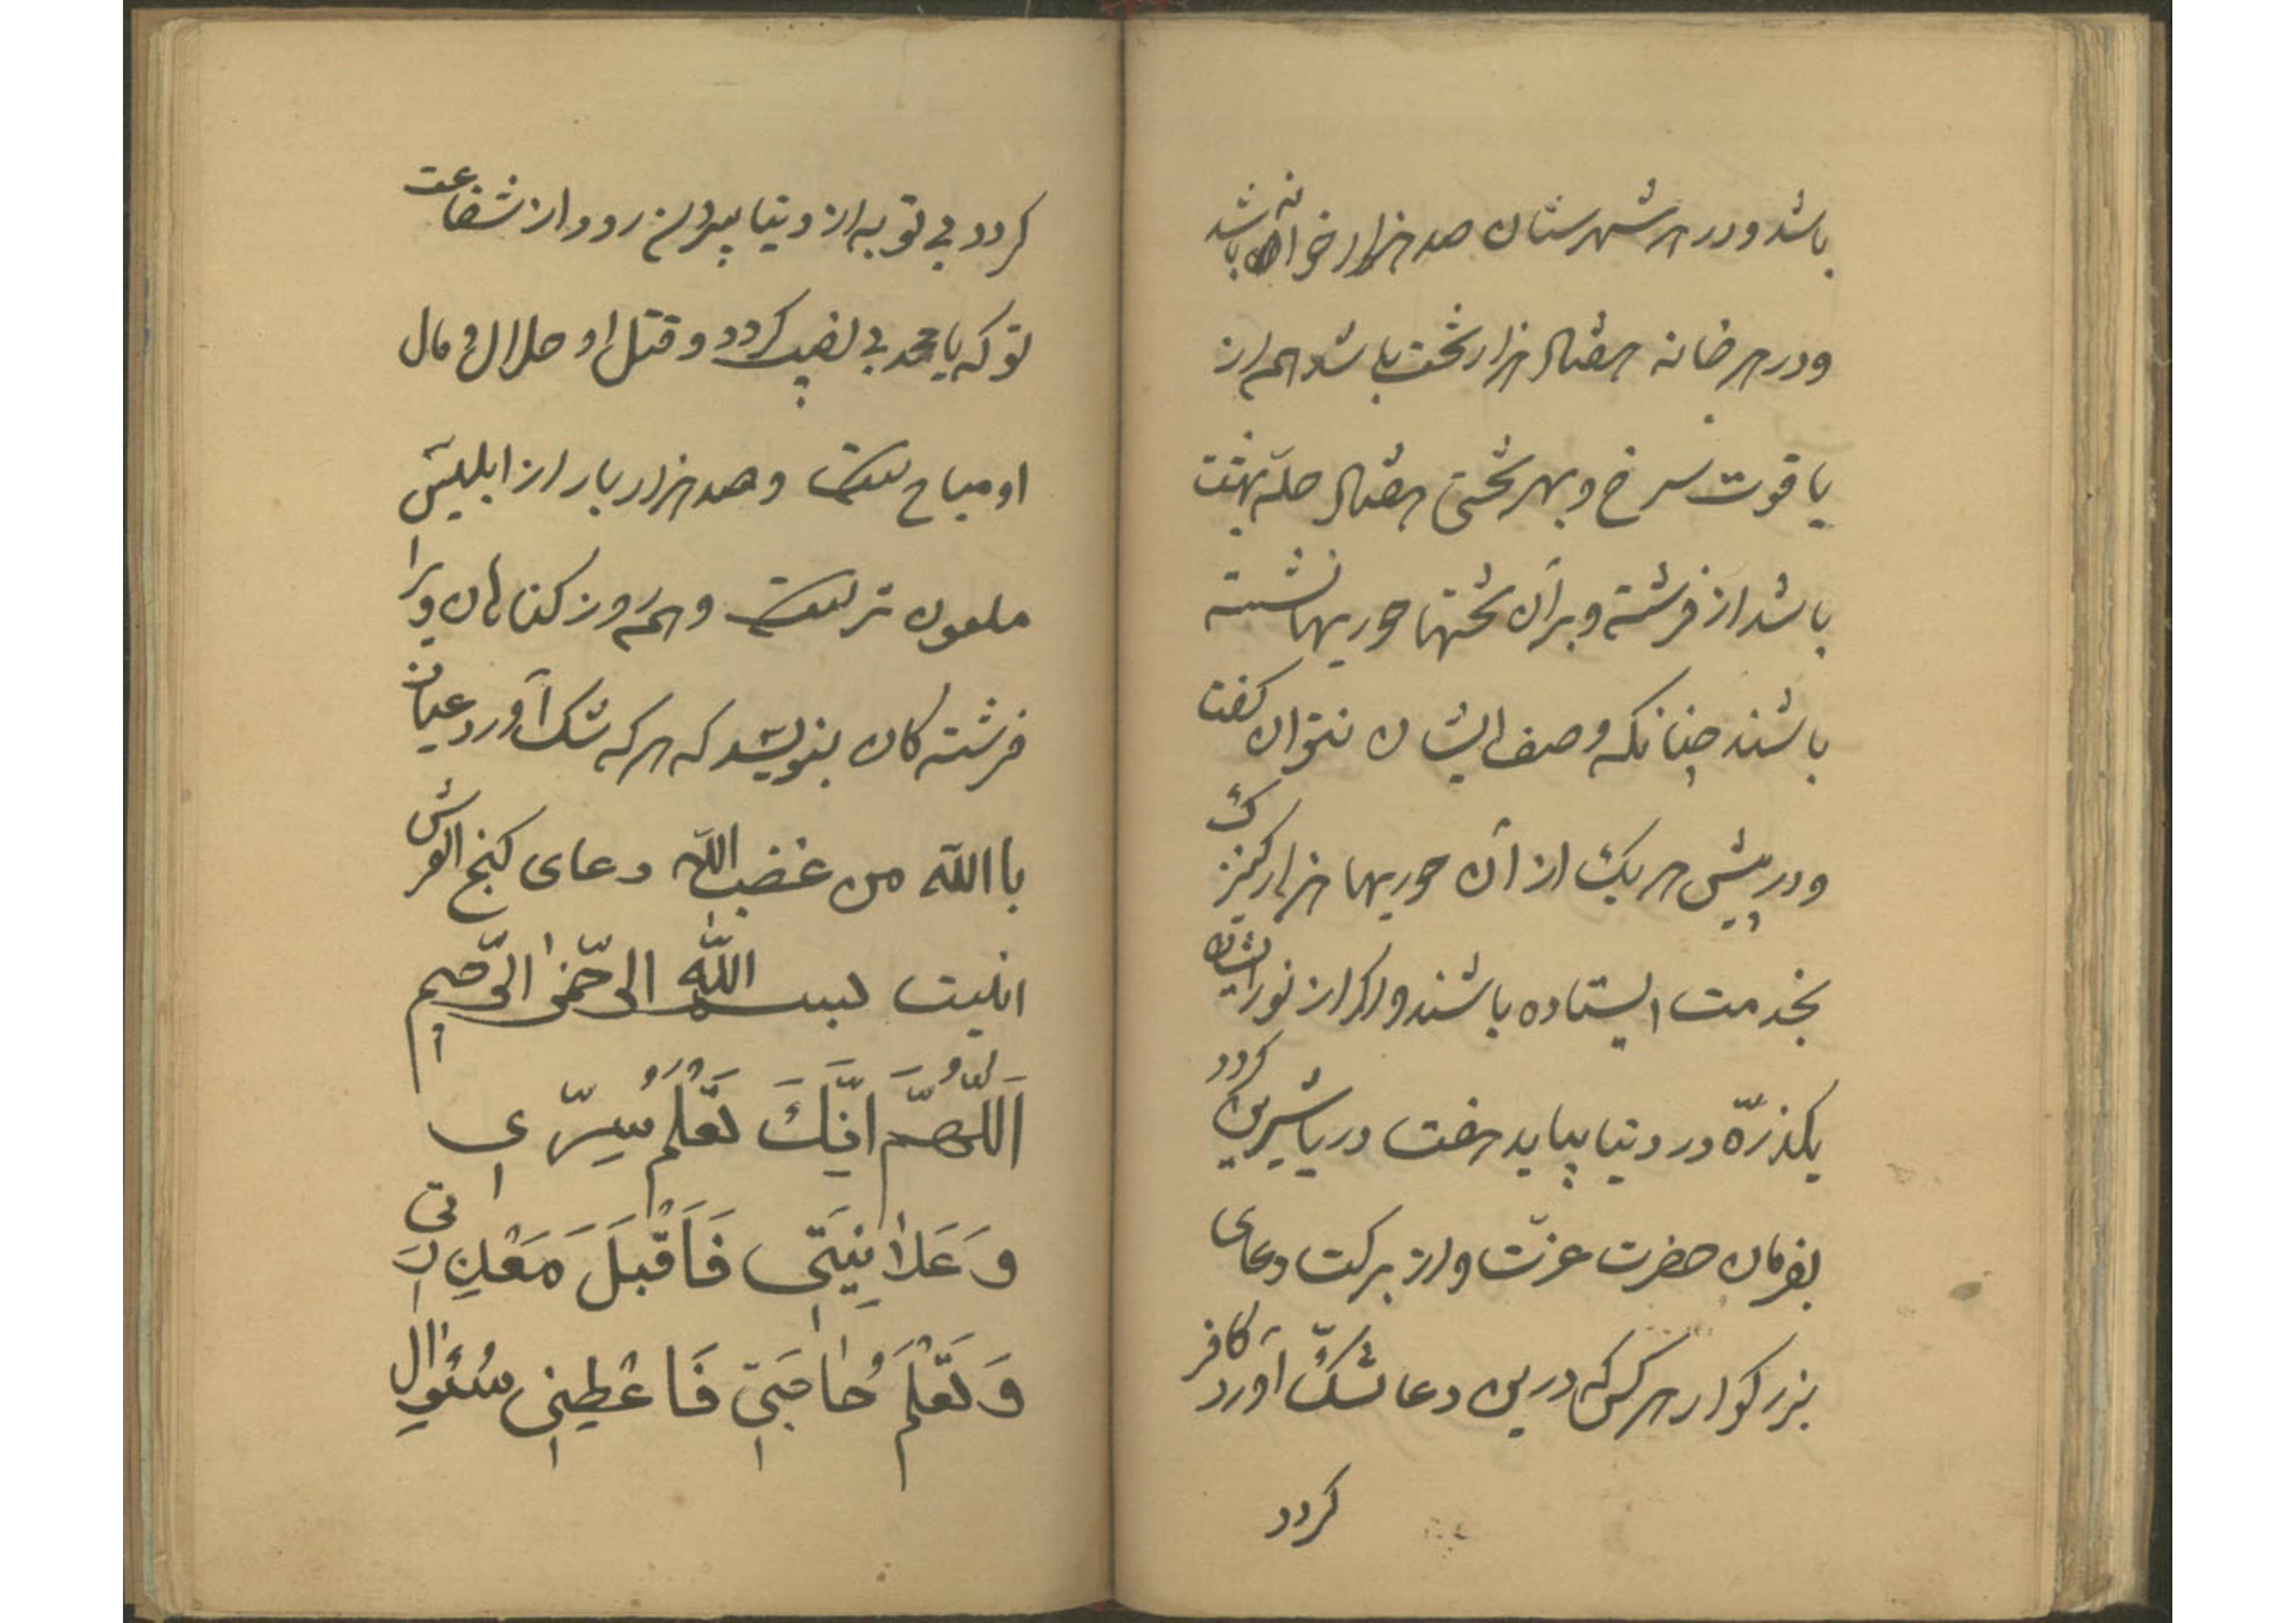 باشد و در هر شهرستان صد هزار خوانه باشد
و در هر خانه هفتاد هزار تخت باشد هم از
یاقوت سرخ و بهر تختی هفتاد حله بهشت
باشد از فرشته و بر آن تختها حوریها نشسته
باشند چنانکه وصف ایشان نتوان کفت
و در پیش هر یک از آن حوریها هزار کنیزک
بخدمت ایستاده باشند و اکر از نور ایشان
یکذرّه در دنیا بیاید هفت دریا شیرین کردد
بفرمان حضرت عزّت و از برکت دعای
بزرکوار هر کس که درین دعا شکّ آورد کافر
کردد
کردد بی توبه از دنیا بیرون رود و از شفاعت
تو که یا محمد بی نصیب کردد و قتل او حلال و مال
او مباح است و صد هزار بار از ابلیس
ملعون تر است و همه روز کناهان ویرا
فرشته کان بنویسد که هر که شک آورد عیاذ
با الله من غضب الله دعای کنج العرش
اینست بسم الله الرّحمن الرّحیم
اَللّٰهُمَّ اِنَّكَ تَعْلَمُ سِرّی
وَ عَلانِیَتی فَاَقْبَلَ مَعْذِرَتی
وَ تَعْلَمُ حٰاجَتی فَاعْطِنی سُئوالی